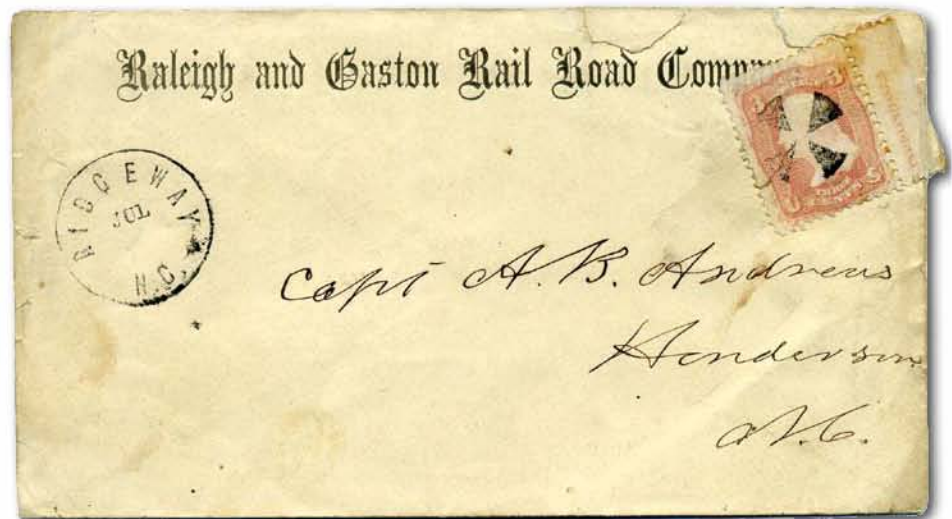 Raleigh and Gaston Rail Road
RIDGEWAY
JUL
N.C.
Capt A. B. Andrews
Henderson
N.C.